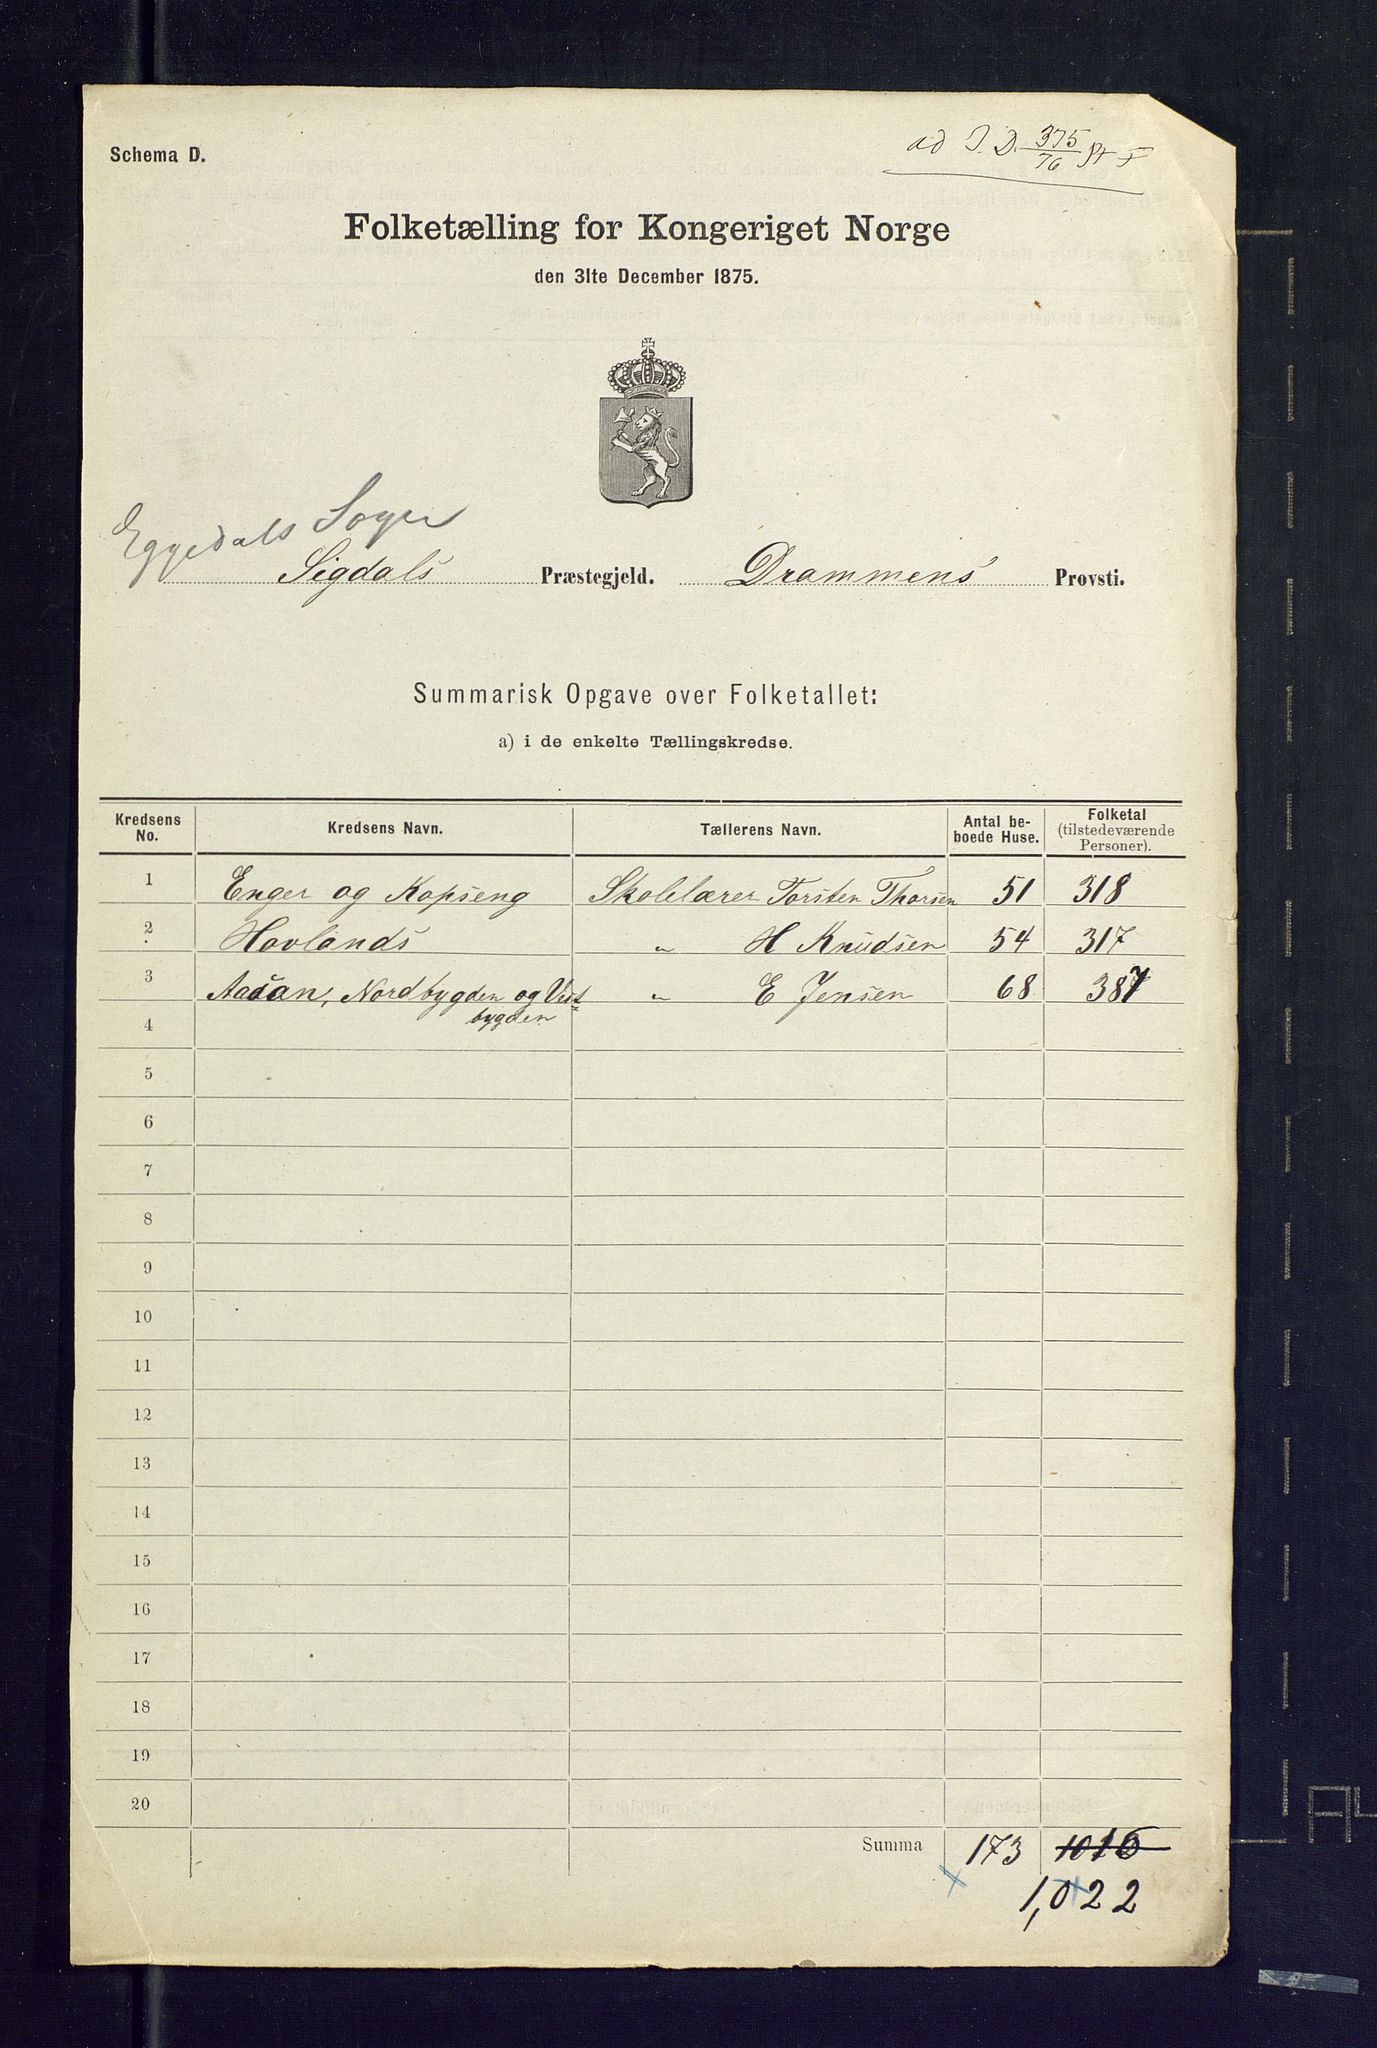 Schema D.
ad J. D. 375/76
Folketælling for Kongeriget Norge
den 31te December 1875.
Eggedals Sogn
Sigdals Præstegjeld. Drammens Provsti.
Summarisk Opgave over Folketallet:
a) i de enkelte Tællingskredse.
Kredsens No. Kredsens Navn. Tællerens Navn. Antal beboede Huse. Folketal (tilstedeværende Personer).
1 Enger og Kopseng Skolelærer Torsten Thorsen 51 318
2 Hovlands " H Knudsen 54 317
3 Aasan, Nordbygden og Vest= " E Jensen 68 387
4 bygden
5
6
7
8
9
10
11
12
13
14
15
16
17
18
19
20
Summa 173 1016
1,022